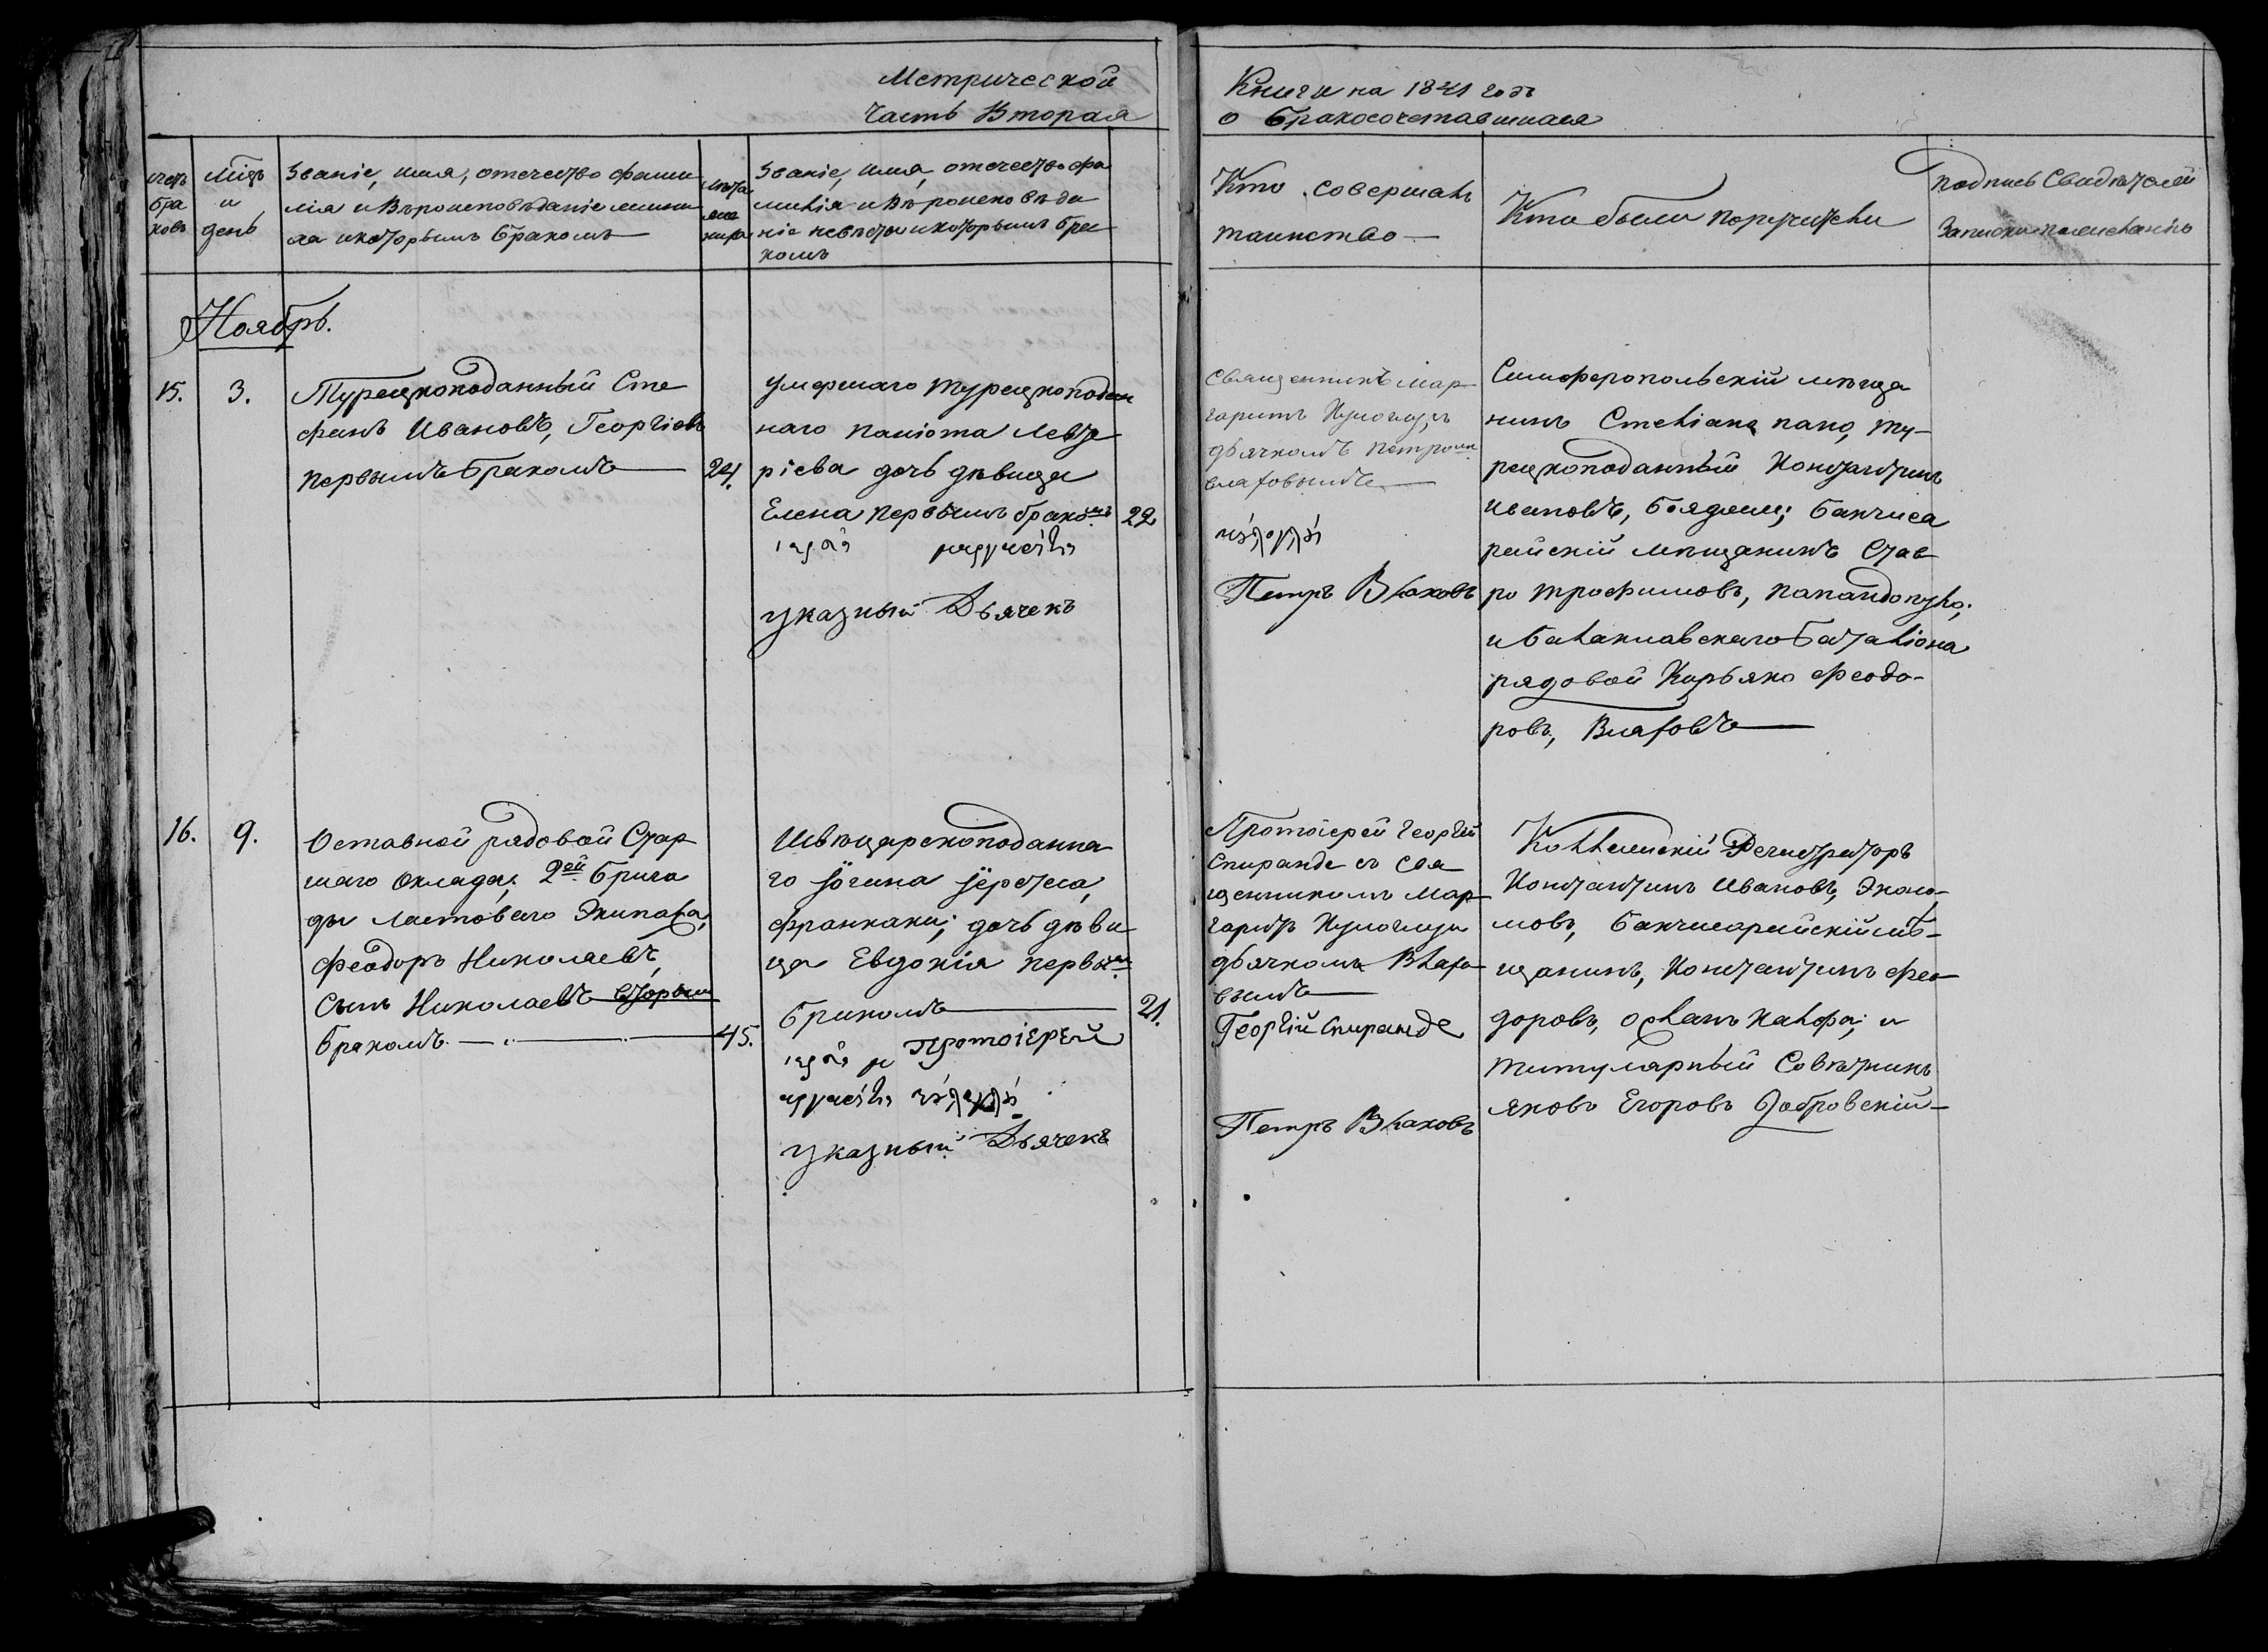 Метрической
Часть Вторая
Книги на 1841 годъ
о бракосочетавшихся
счетъ
бра
ковъ
Мѣцъ
и
день
Званіе, имя, отечество фами
лія и Вѣроисповѣданіе жени
ха и которымъ бракомъ
лѣта
же
ниха
Званіе, имя, отечество фа
милія и Вѣроисповѣда
ніе невѣсты и которымъ бра
комъ
Кто совершалъ
таинство
Кто были поручители
Подпись Свидѣтелей
Записки по желанію
Ноябрь.
15.
3.
Турецкоподанный Сте
фанъ Ивановъ, Георгіевъ
первымъ бракомъ
24.
умершаго турецкоподан
наго Паніота Левте
ріева дочь дѣвица
Елена первымъ бракомъ
22
указный Дьячекъ
Священникъ Мар
гаритъ
дьячкомъ Петромъ
Влаховымъ
Петръ Влаховъ
Симферопольскій мѣща
нинъ Стеліанъ Папо, ту-
рецкоподанный Константинъ
Ивановъ, Бояджи; Бахчиса
райскій мѣщанинъ Став
ро Трофимовъ, Папандопуло;
и Балаклавскаго Баталіона
рядовой Кирьяко Феодо-
ровъ, Влаховъ
16.
9.
Оставной рядовой Стар
шаго Оклада; 2ой Брига
ды Ластоваго Экипажа,
Феодоръ Николаевъ,
Сынъ Николаевъ вторым
бракомъ
45.
Швѣцарскоподанна
го
франкаки; дочь дѣви
ца Евдокія первым
бракомъ
21.
Протоіерей
указный Дьячекъ
Протоіерей Георгій
Спиранде съ Свя
щенникомъ Мар
гаритъ
дьячкомъ Влахо
вымъ
Георгій Спиранде
Петръ Влаховъ
Коллежскій Регистраторъ
Константинъ Ивановъ, Эконо-
мовъ, Бахчисарайскій мѣ-
щанинъ, Константинъ Фео
доровъ, Калфа; и
Титулярный Совѣтникъ
Яковъ Егоровъ Добровскій